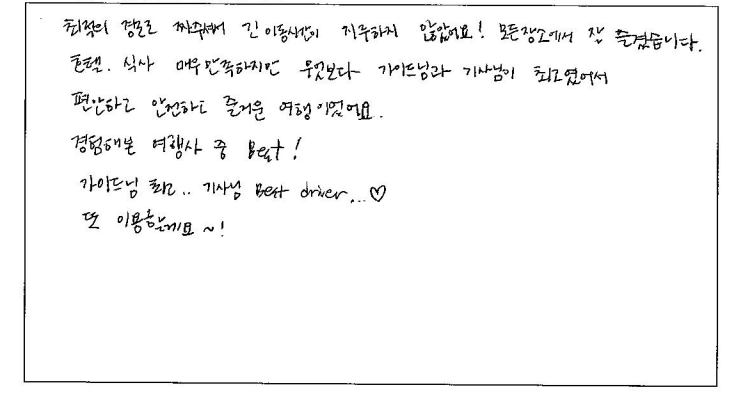 최적의 경로로 짜주셔서 긴 이동시간이 지루하지 않았어요! 모든 장소에서 잘 즐겼습니다.
호텔. 식사 매우 만족하지만 무엇보다 가이드님과 기사님이 최고였어서
편안하고 안전하고 즐거운 여행이었어요.
경험해본 여행사 중 Best!
가이드님 최고.. 기사님 Best driver...♡
또 이용할게요~!